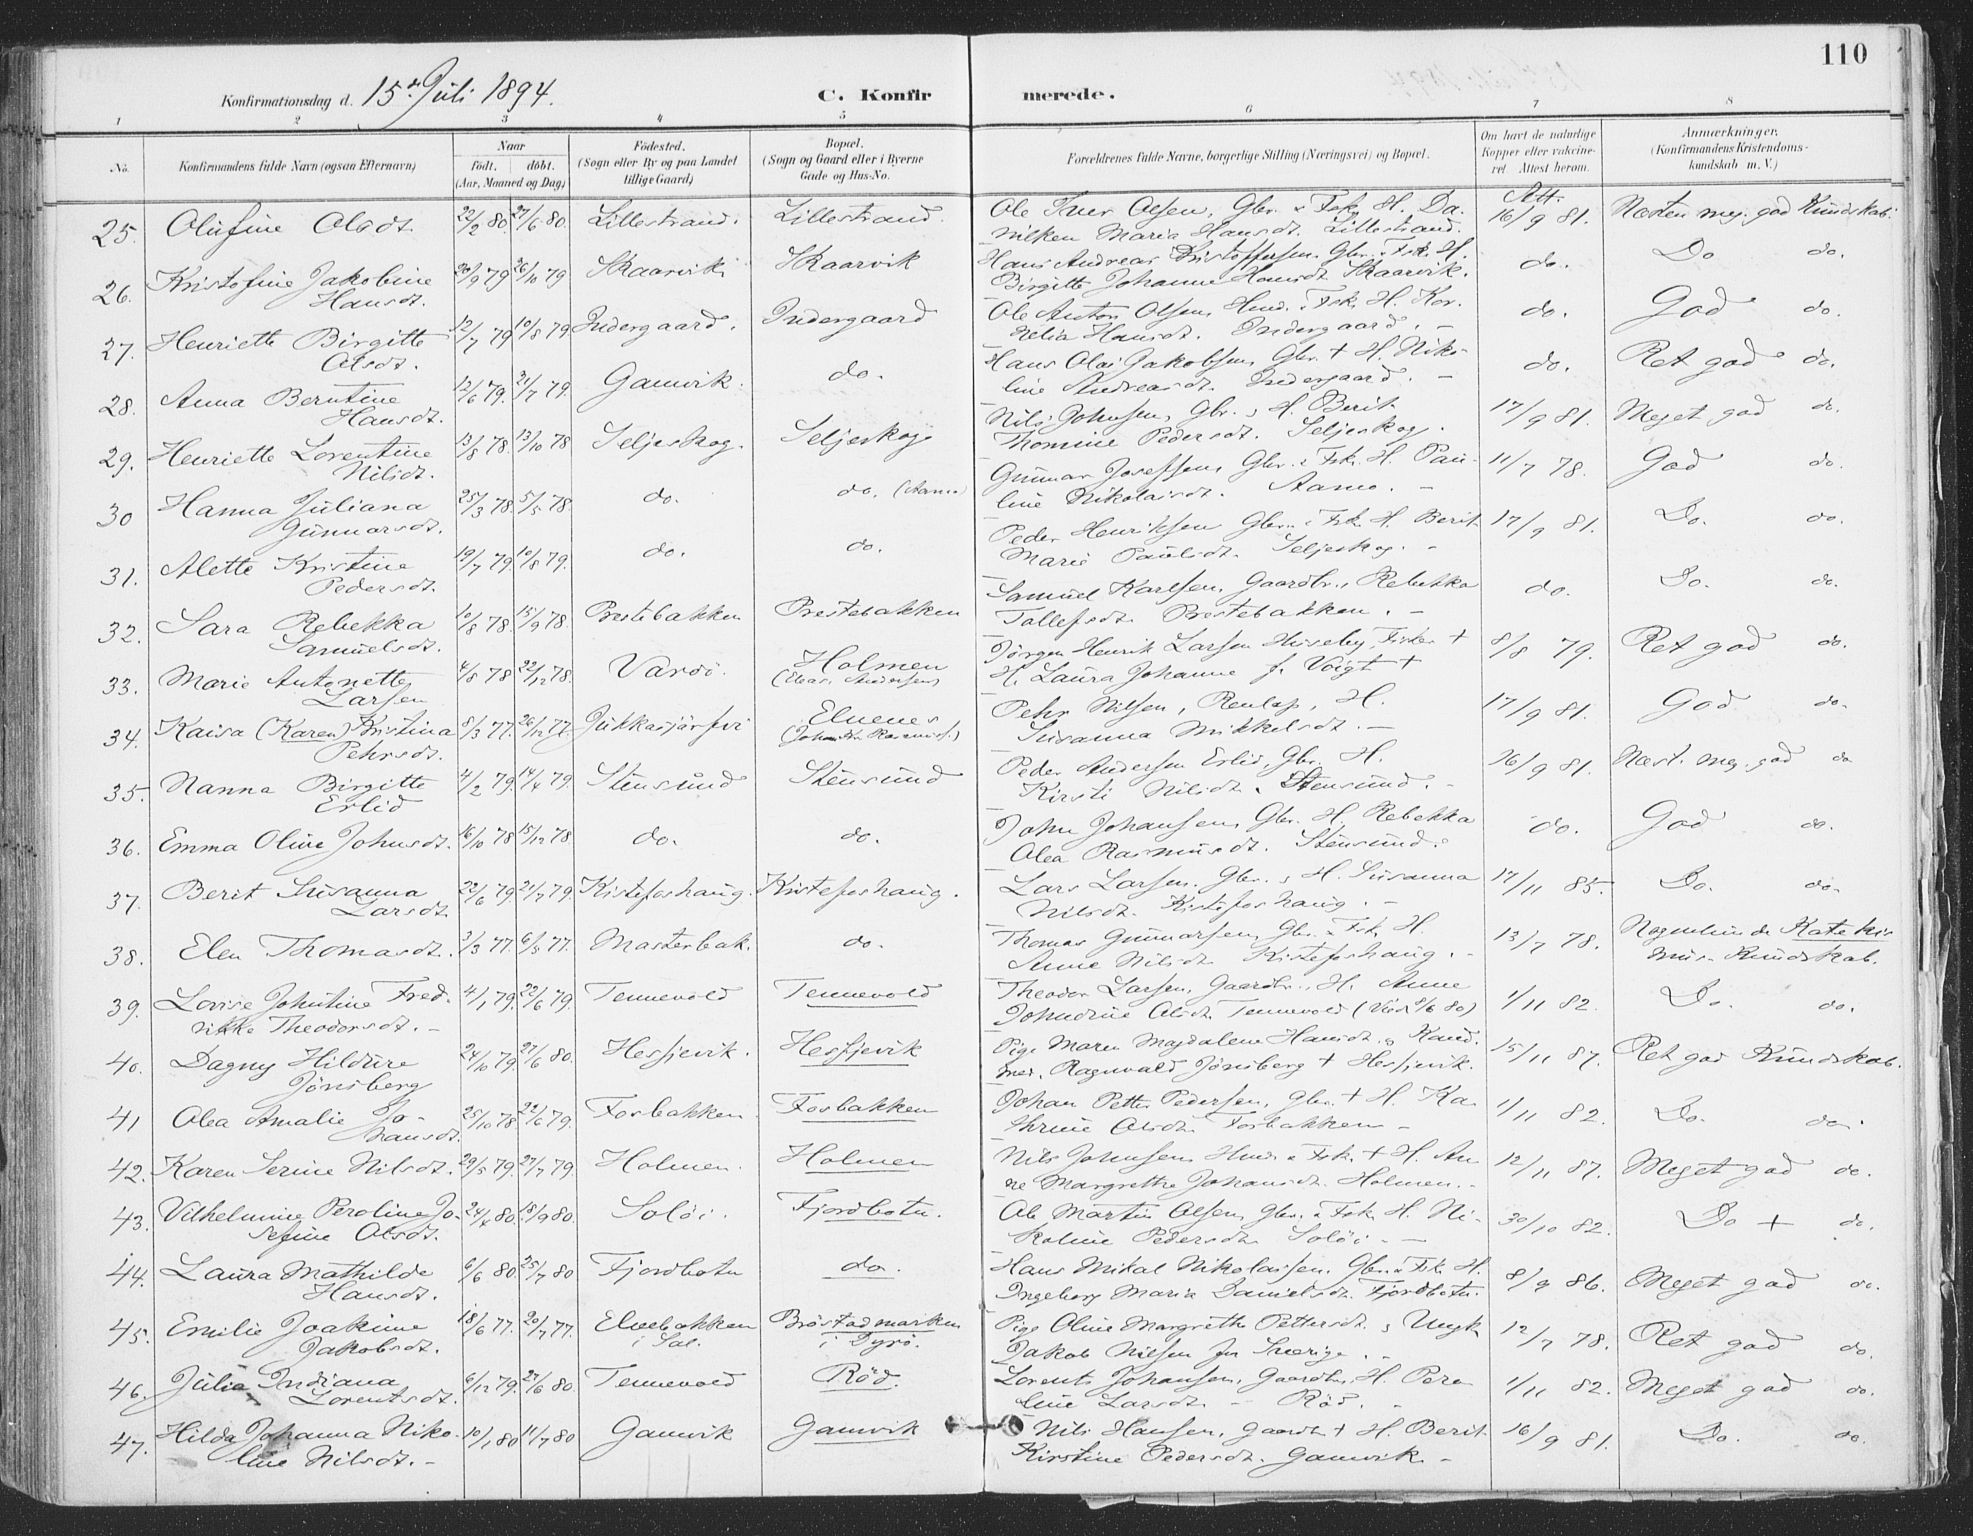 110
Konfirmationsdag d. 15de Juli 1894.
C. Konfirmerede.
1 2 3 4 5 6 7 8
No.
Konfirmandens fulde Navn (ogsaa Efternavn)
Naar
født. døbt.
(Aar, Maaned og Dag)
Fødested.
(Sogn eller By og paa Landet
tillige Gaard)
Bopæl.
(Sogn og Gaard eller i Byerne
Gade og Hus-No.
Forældrenes fulde Navne, borgerlige Stilling (Næringsvei) og Bopæl.
Om havt de naturlige
Kopper eller vaccineret. Attest herom.
Anmærkninger.
(Konfirmandens Kristendomskundskab m. V.)
25. Olufine Olsdt. 22/2 80 27/6 80. Lillestrand. Lillestrand. Ole Iver Olsen, Gbr. & Fsk. H. Da- Att. 16/9 81. Næsten meg. god Kundskab.
nilken Maria Hansdt. Lillestrand.
26. Kristofine Jakobine 20/9 79 26/10 79 Skaarvik Skaarvik Hans Andreas Kristoffersen Gbr. & Fsk. H. do. Do do.
Hansdt. Birgitte Johanne Hansdt. Skaarvik.
27. Henriette Birgitte 12/7 79 10/8 79 Indergaard. Indergaard Ole Anton Olsen, Hmd. & Fsk. H. Kor- do. God do.
Olsdt. nelia Hansdt. Indergaard. -
28. Anna Berntine 12/6 79. 21/7 79. Gamvik. do. Hans Olai Jakobsen, Gbr. + H. Niko- do. Ret god do.
Hansdt. line Andreasdt. Indergaard. -
29. Henriette Lorentine 13/8 78. 13/10 78 Seljeskog. Seljeskog Nils Johnsen, Gbr. & H. Berit 17/9 81. Meget god do.
Nilsdt. Thomine Pedersdt. Seljeskog.
30 Hanna Juliana 25/3 78. 5/5 78. do. do. (Aamo) Gunnar Josefsen, Gbr. & Fsk. H. Pau- 11/7 78. God do.
Gunnarsdt. line Nikolaisdt. Aamo. -
31. Alette Kristine 19/7 79. 10/8 79. do. do. Peder Henriksen Gbr. & Fsk. H. Berit 17/9 81. Do. do.
Pedersdt. Marie Paulsdt. Seljeskog. -
32. Sara Rebekka 10/8 78. 15/9 78. Prestebakken Prestebakken Samuel Karlsen, Gaardbr., Rebekka do. Do. do.
Samuelsdt. Tollefsdt. Prestebakken. -
33. Marie Antonette 4/8 78 22/12 78. Vardö. Holmen Jörgen Henrik Larsen Huseby, Fisker + 8/8 79. Ret god do.
Larsen (Elias Andersen) H. Laura Johanne f. Voigt +
34. Kaisa (Karen) Kristina 8/3 77. 26/12 77. Jukkasjärfvi Elvenes Pehr Nilsen, Renlap, H. 17/9 81. God do.
Pehrsdt. Susanna Mikkelsdt. -
35. Nanna Birgitte 4/2 79. 14/4 79. Stensund Stensund Peder Andersen Erlid, Gbr. H. 26/9 81. Næst. meg. god do
Erlid Kirsti Nilsdt. Stensund. -
36. Emma Oline Johnsdt. 16/10 78 15/12 78 do. do. John Johansen, Gbr. H. Rebekka do. God do.
Olea Rasmusdt. Stensund.
37. Berit Susanna 22/6 79. 21/7 79. Kistefoshaug. Kistefoshaug. Lars Larsen, Gbr. & H. Susanna 17/11 85. Do. do.
Larsdt. Nilsdt. Kistefoshaug. -
38. Elen Thomasdt. 3/3 77. 6/5 77. Masterbak. do. Thomas Gunnarsen, Gbr. & Fsk. H. 13/7 78. Nogenlunde Katekis
Anne Nilsdt. Kistefoshaug. - mus-Kundskab.
39. Lovise Johntine Fred- 4/1 79. 22/6 79. Tennevold Tennevold Theodor Larsen, Gaardbr., H. Anne 1/11 82. Do. do.
rikke Theodorsdt. - Johndine Olsdt. Tennevold (Viede 8/6 80)
40. Dagny Hildure 24/10 79. 27/6 80. Hesjevik. Hesjevik Pige Maren Magdalene Hansdt. & Kand. 15/11 87. Ret god Kundskab.
Jönsberg med. Ragnvald Jönsberg + Hesjevik.
41 Olea Amalie Jo- 25/10 78. 22/6 79. Fosbakken Fosbakken Johan Petter Pedersen, Gbr. + H. Ka- 1/11 82. Do. do.
hansdt. thrine Olsdt. Fosbakken -
42. Karen Serine Nilsdt. 29/5 79. 27/7 79. Holmen. Holmen Nils Johnsen Hmd. & Fsk. + H. An- 12/11 87. Meget god do.
ne Margrethe Johansdt. Holmen. -
43. Vilhelmine Peroline Jo- 24/4 80. 18/9 80. Solöi. Fjordbotn. Ole Martin Olsen, Gbr. & Fsk. H. Ni- 30/10 82. Do + do.
sefine Olsdt. koline Pedersdt. Solöi. -
44. Laura Mathilde 6/6 80. 25/7 80 Fjordbotn do. Hans Mikal Nikolaisen, Gbr. & Fsk. H. 8/9 86. Meget god do.
Hansdt. Ingeborg Maria Danielsdt. Fjordbotn.
45. Emilie Joakime 18/6 77. 20/7 77. Elvebakken Bröstadmarken Pige Oline Margrethe Pettersdt. & Ungk. 12/7 78. Ret god do.
Jakobsdt. i Sal. i Dyrö. Jakob Nilsen fra Sverige. -
46. Julia Indiana 6/12 79. 27/6 80. Tennevold Röd. Lorents Johansen, Gaardbr., H. Pero- 1/11 82. Meget god do.
Lorentsdt. line Larsdt. - Röd. -
47. Hilda Johanna Niko- 10/1 80 11/7 80 Gamvik Gamvik Nils Hansen, Gaardbr. + H. Berit 16/9 81. Do. do.
line Nilsdt. - Kirstine Pedersdt. Gamvik -